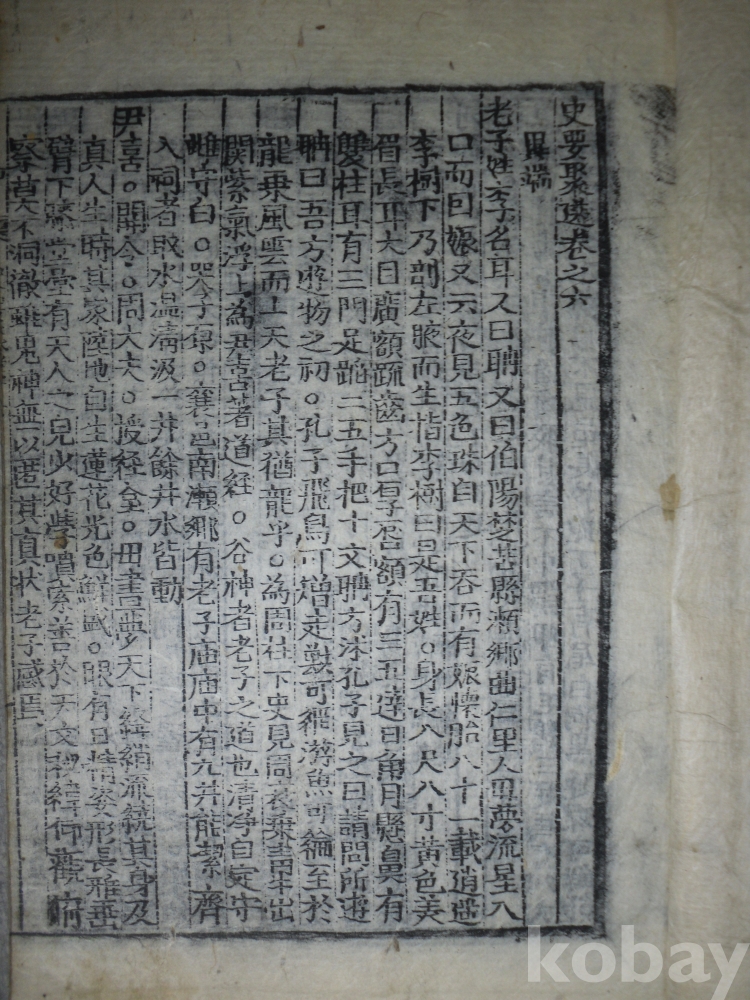 史要聚選卷之六
異端
老子姓李名耳又曰聃又曰伯陽楚苦縣瀬鄉曲仁里人母夢流星入
口而因娠又云夜見五色珠自天下吞而有娠懷胎八十一載逍遥
李樹下乃剖左腋而生指李樹曰是吾姓○身長八尺八寸黃色美
眉長耳大目廣額疏齒方口厚唇額有三五達日角月懸鼻有
雙柱耳有三門足蹈二五手把十文聃方沐孔子見之曰請問所遊
聃曰吾方遊物之初○孔子飛鳥可矰走獸可羅游魚可綸至於
龍乘風雲而上天老子其猶龍乎○為周柱下史見周衰乘青牛出
関紫氣浮上為尹喜著道經○谷神者老子之道也清净自定守
雌守白○襄邑南瀬鄉有老子庙庙中有九井能㓗齊
入祠者取水温清汲一井餘井水皆動
尹喜○關令○周大夫○授経○母晝夢天下絳綃流繞其身及
真人生時其家陸地自生蓮花光色鮮盛○眼有日精姿形長雅垂
臂下膝堂堂有天人之皃少好學墳索善於天文仰觀俯
察莫不洞徹雖鬼神無以匿其真状老子感焉
kobay